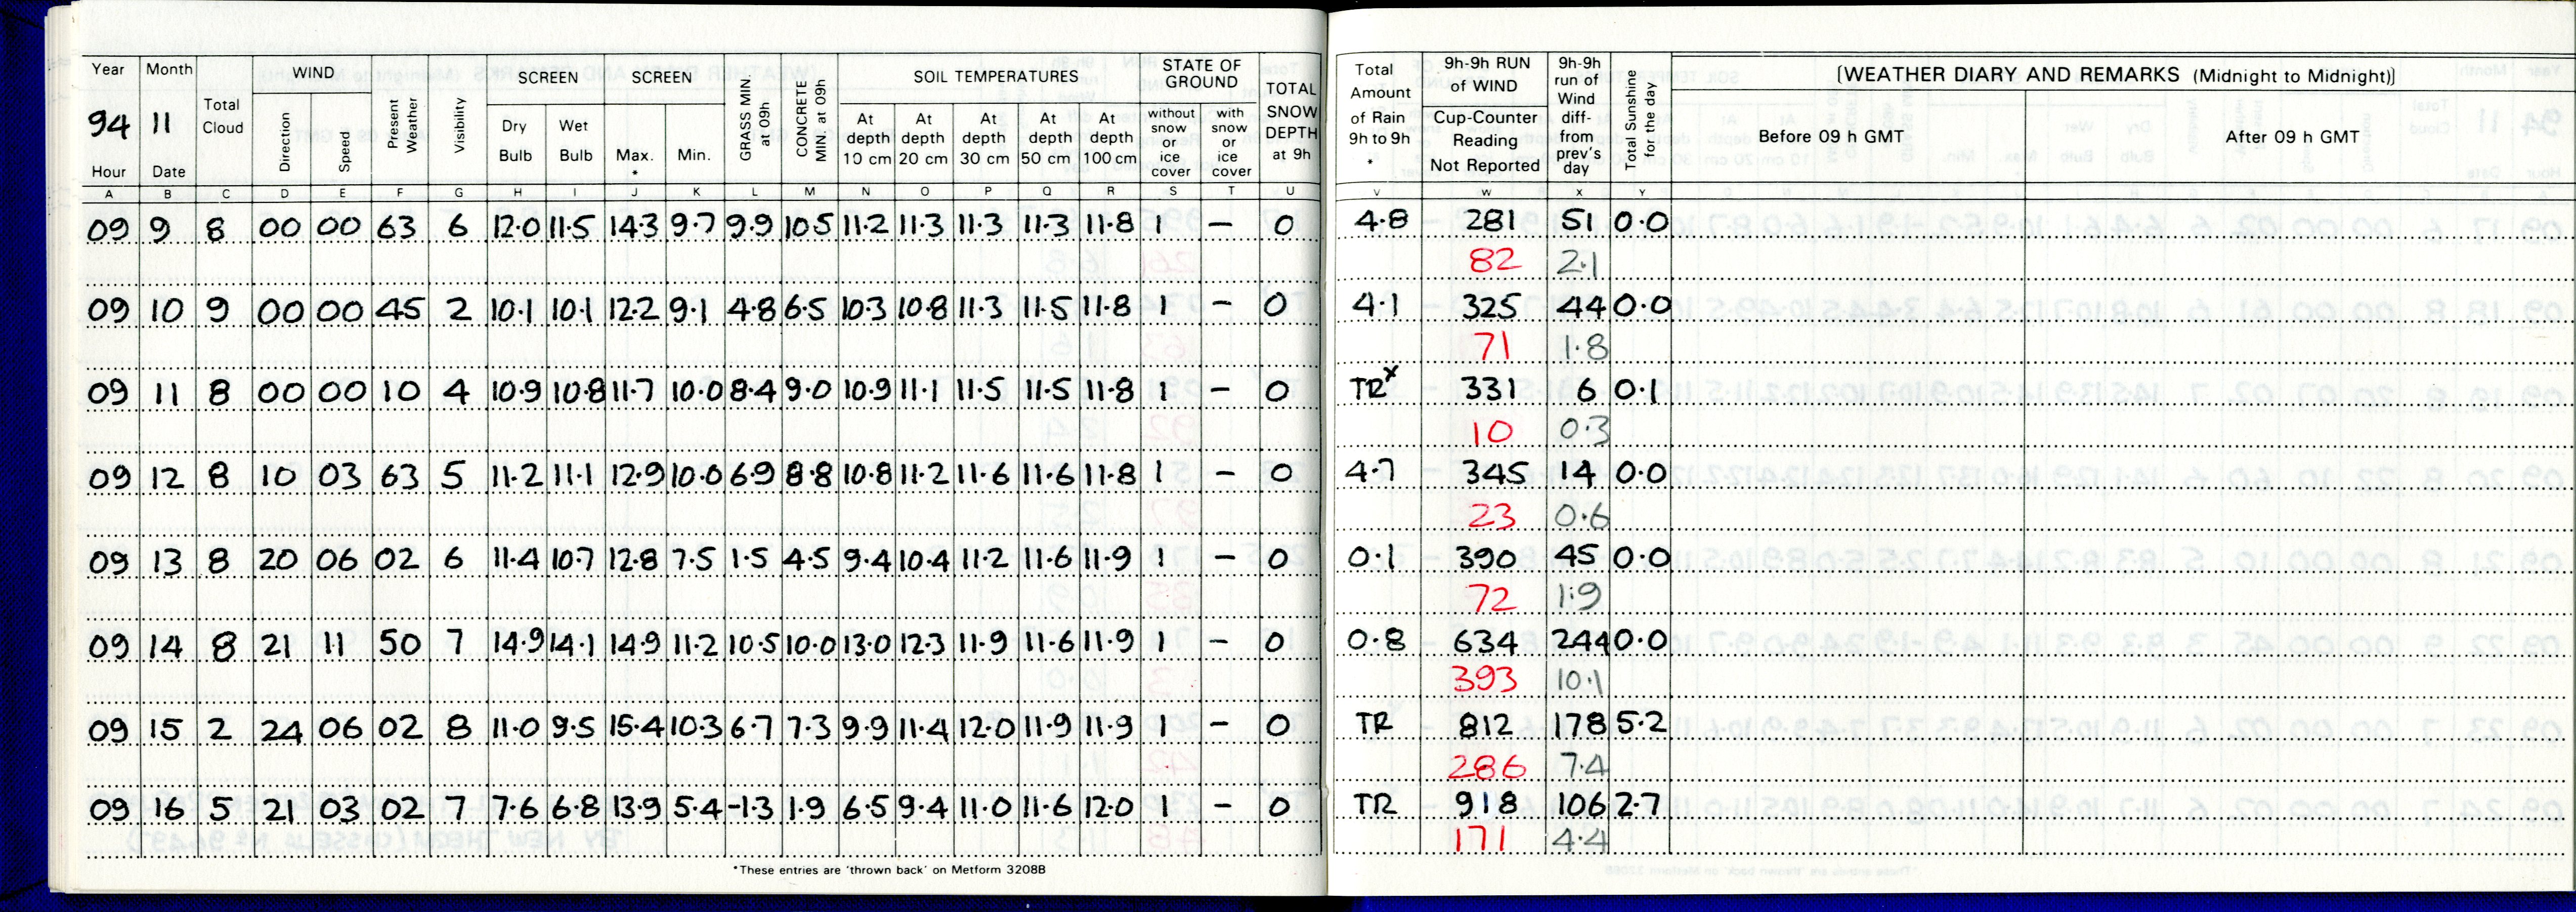 Year Month Total Cloud WIND Present Weather Visibility SCREEN SCREEN GRASS MIN at 09h CONCRETE MIN at 09h SOIL TEMPERATURES STATE OF GROUND TOTAL SNOW DEPTH at 9h Total Amount of Rain 9h to 9h * 9h-9h RUN of WIND 9h-9h run of Wind diff- from prev's day Total Sunshine for the day [WEATHER DIARY AND REMARKS (Midnight to Midnight)]
94 11 Direction Speed Dry Bulb Wet Bulb Max. * Min. At depth 10 cm At depth 20 cm At depth 30 cm At depth 50 cm At depth 100 cm without snow or ice cover with snow or ice cover Cup-Counter Reading Not Reported Before 09 h GMT After 09 h GMT
Hour Date
A B C D E F G H I J K L M N O P Q R S T U V W X Y
09 9 8 00 00 63 6 12.0 11.5 14.3 9.7 9.9 10.5 11.2 11.3 11.3 11.3 11.8 1 – 0 4.8 281 51 0.0
82 2.1
09 10 9 00 00 45 2 10.1 10.1 12.2 9.1 4.8 6.5 10.3 10.8 11.3 11.5 11.8 1 – 0 4.1 325 44 0.0
71 1.8
09 11 8 00 00 10 4 10.9 10.8 11.7 10.0 8.4 9.0 10.9 11.1 11.5 11.5 11.8 1 – 0 TRx 331 6 0.1
10 0.3
09 12 8 10 03 63 5 11.2 11.1 12.9 10.0 6.9 8.8 10.8 11.2 11.6 11.6 11.8 1 – 0 4.7 345 14 0.0
23 0.6
09 13 8 20 06 02 6 11.4 10.7 12.8 7.5 1.5 4.5 9.4 10.4 11.2 11.6 11.9 1 – 0 0.1 390 45 0.0
72 1.9
09 14 8 21 11 50 7 14.9 14.1 14.9 11.2 10.5 10.0 13.0 12.3 11.9 11.6 11.9 1 – 0 0.8 634 244 0.0
393 10.1
09 15 2 24 06 02 8 11.0 9.5 15.4 10.3 6.7 7.3 9.9 11.4 12.0 11.9 11.9 1 – 0 TR 812 178 5.2
286 7.4
09 16 5 21 03 02 7 7.6 6.8 13.9 5.4 -1.3 1.9 6.5 9.4 11.0 11.6 12.0 1 – 0 TR 918 106 2.7
171 4.4
*These entries are 'thrown back' on Metform 3208B